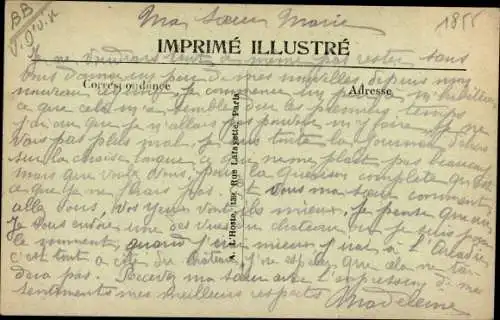 BB
1855
Ma sœur Marie
IMPRIMÉ ILLUSTRÉ
Je ne voudrais tout de même pas rester sans
vous donner un peu de mes nouvelles depuis mon
nouveau Je commence un peu à m'habituer
Correspondance
Adresse
ce que cela m'a semblé dur les premiers temps
j'ai cru que je n'allais pas pouvoir m'y faire. Je ne
vais pas plus mal. Je suis toute la journée dehors
sur la chaise longue ce qui ne me plait pas beaucoup
mais que voulez vous, pour la guérison complète
ce que je ne ferais pas. Et vous ma sœur comment
allez vous, vos yeux vont ils mieux, je pense que oui
Je vous envoie une des vues du château où je suis pour
le moment, quand j'irai mieux j'irai à l'
c'est tout à côté du château, j'espère que cela ne tar-
dera pas. Recevez ma sœur avec l'expression de mes
sentiments mes meilleurs respects
Madeleine
A. L'Hoste, 139, Rue Lafayette, Paris